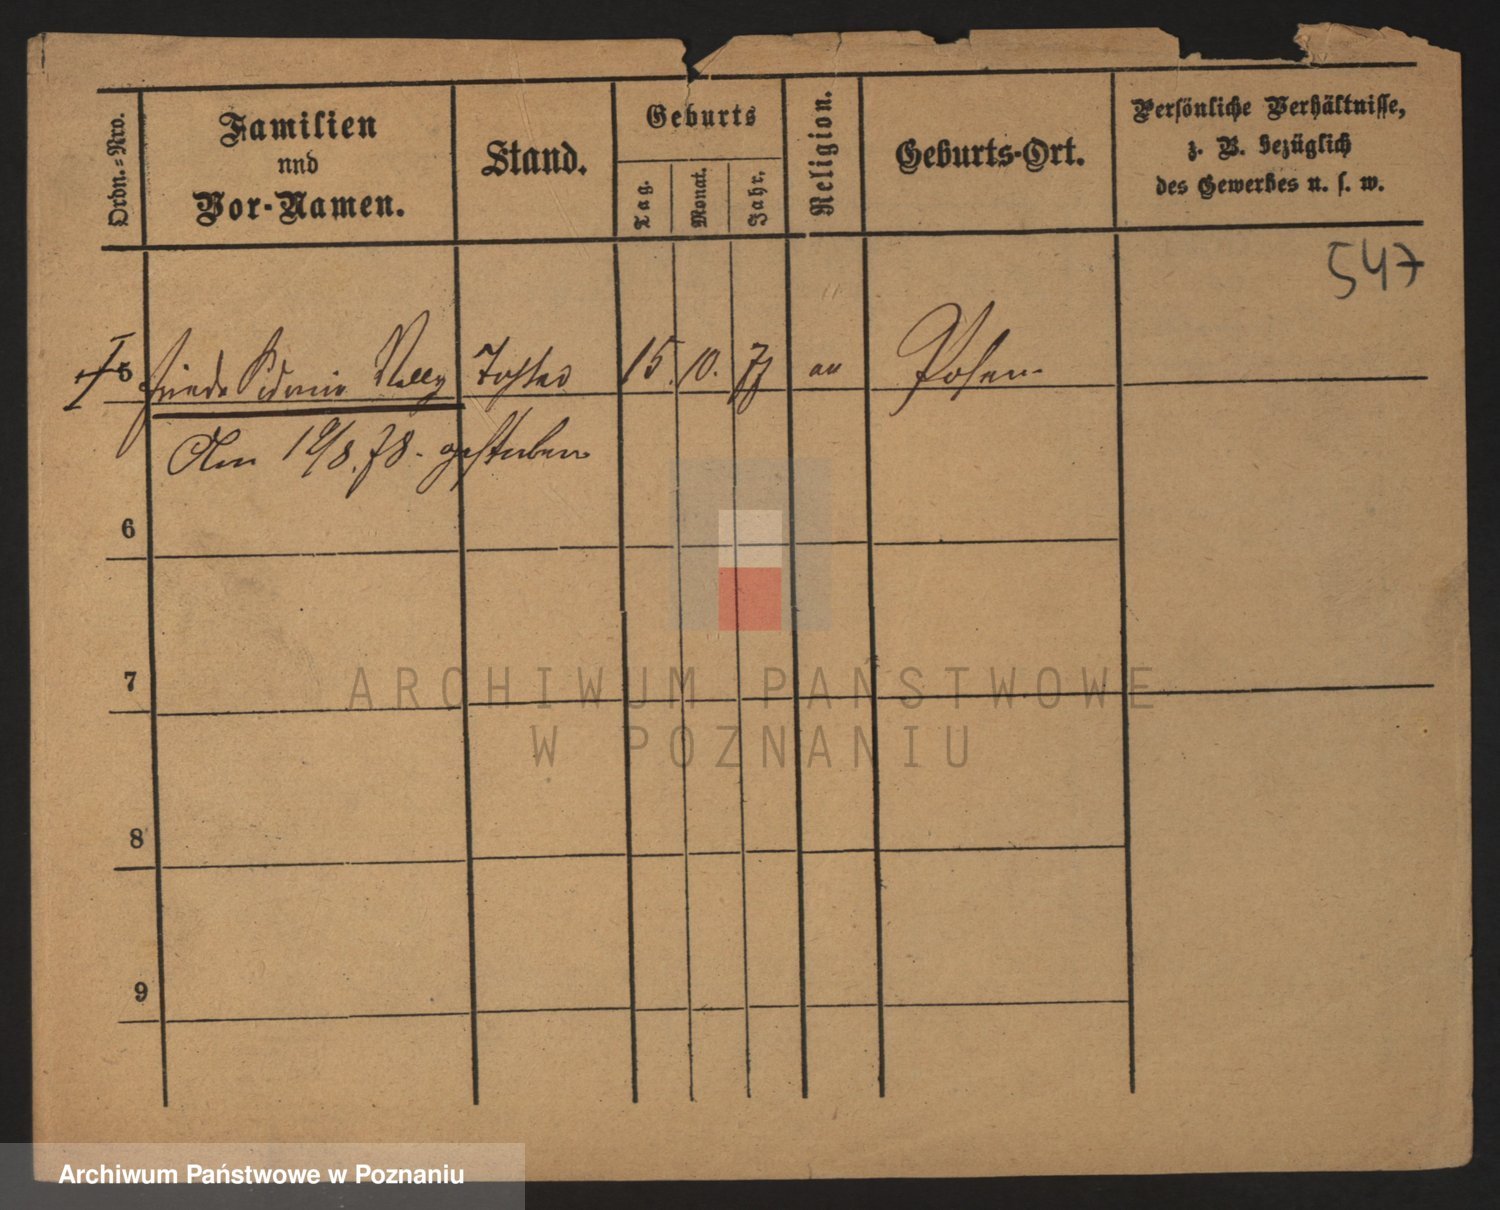 Ordn.-Nro.
Familien
und
Vor-Namen.
Stand.
Geburts
Tag.
Monat.
Jahr.
Religion.
Geburts-Ort.
Persönliche Verhältnisse,
z. B. bezüglich
des Gewerbes u. s. w.
547
5 Frieda Sidonie Nelly Tochter 15. 10. 77 Posen
Am 19/8.78. gestorben
6
7
8
9
ARCHIWUM PAŃSTWOWE
W POZNANIU
Archiwum Państwowe w Poznaniu